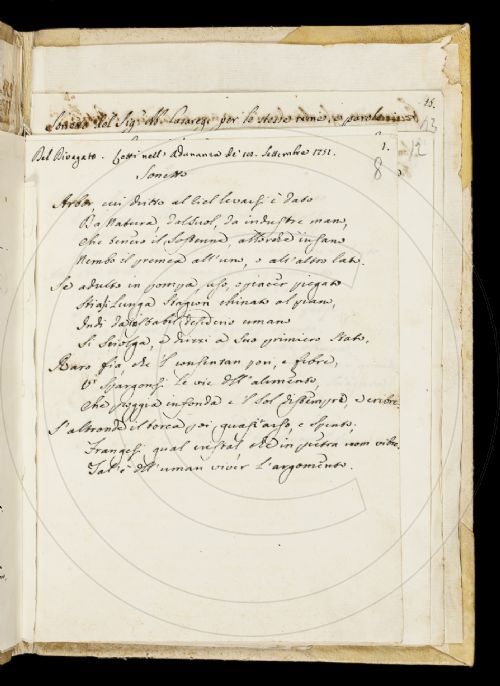 15.
Sonetto del Sig.r Ab. per le stesse rime, e parole
13
12
1.
Del Divagato. Letti nell' Adunanza de' 10. Settembre 1751.
8
Sonetto
Arbor cui dritto al Ciel levarsi è dato
Da Natura, dal suol, da industre mano,
Che tenero il sostenne, allorchè insano
Nembo il premea all'uno, o all'altro lato.
Se adulto in pompa, uso, o piacer piegato
Stiasi lunga stagion chinato al piano,
Indi da instabil desiderio umano
Si sciolga, e drizzi a suo primiero stato,
Raro fia, che 'l consentan pori, e fibre,
V' spargonsi le vie dell'alimento,
Che pioggia infonda e 'l Sol distempre, e cribre.
S'altronde il torca poi quasi arso, e spento,
Frangesi qual cristal che in pietra uom vibre,
Tal' è dell'uman viver l'argomento.